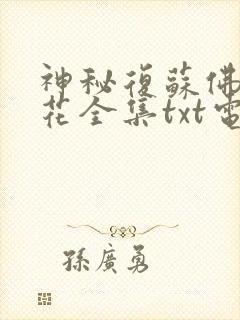 神秘復蘇佛
花全集txt電
孫廣勇